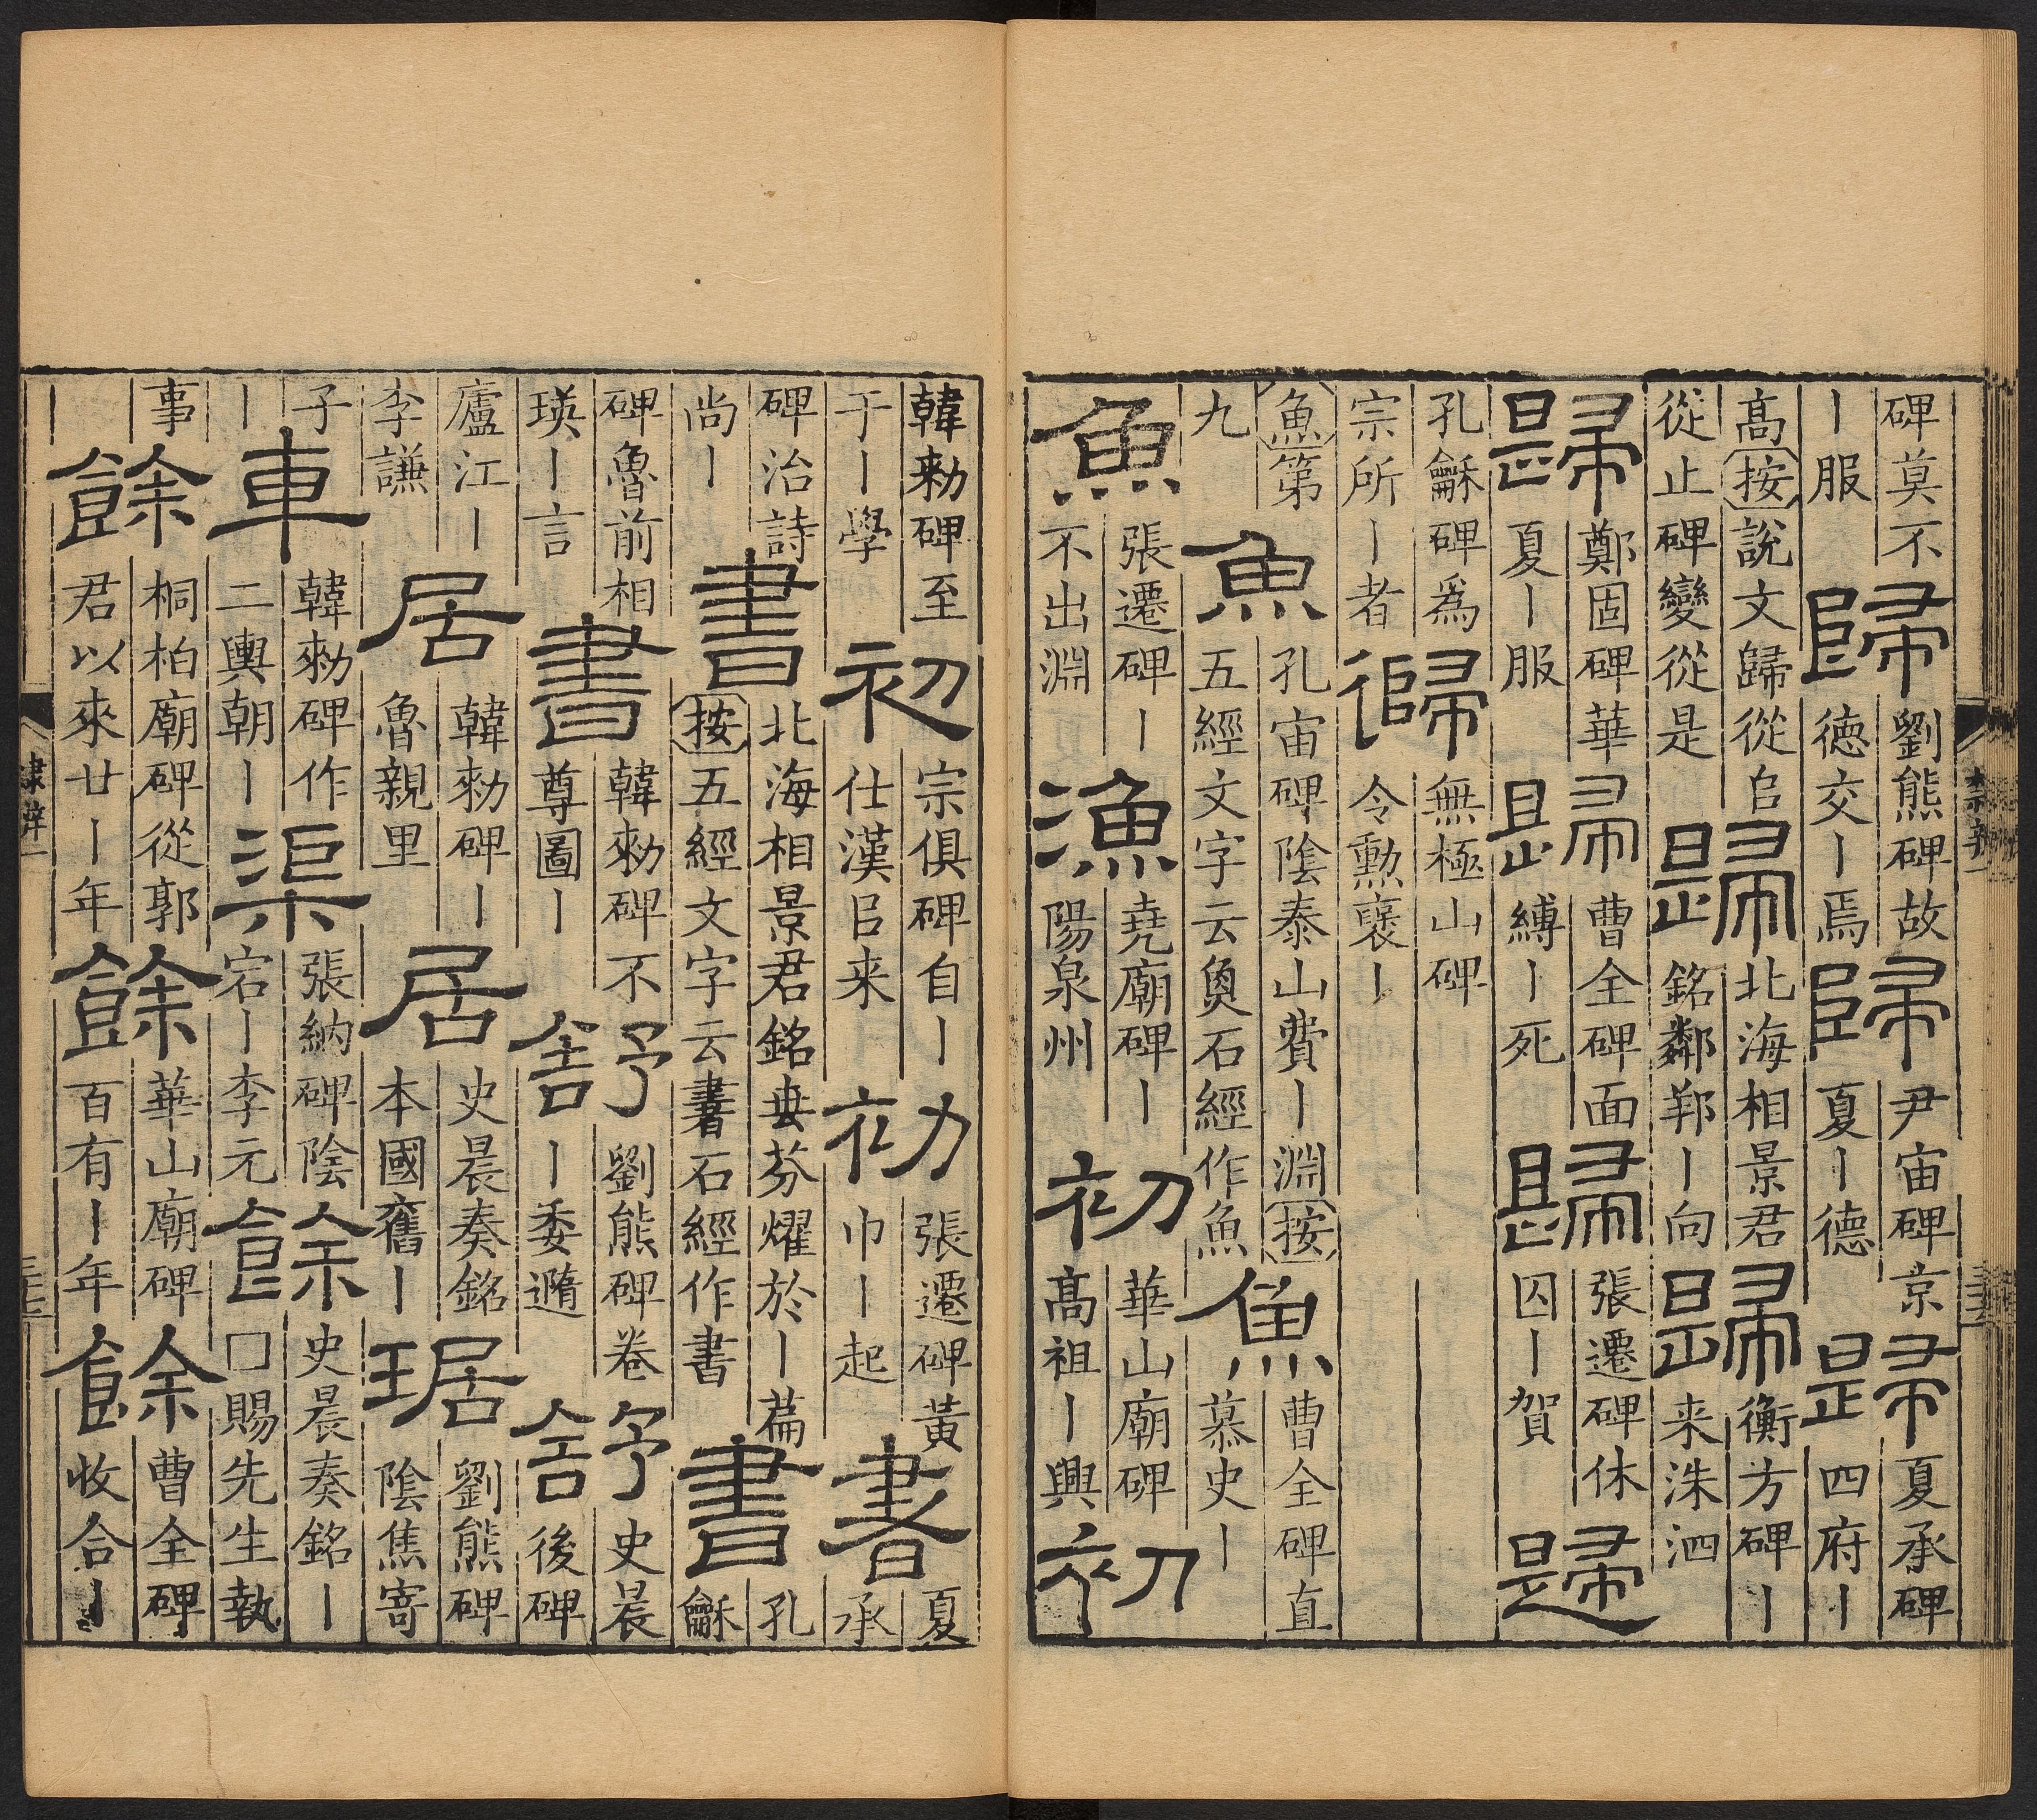 碑莫不丨服歸劉熊碑故德交丨焉歸尹宙碑京夏丨德歸夏承碑四府丨
髙按說文歸從𠂤從止碑變從是歸北海相景君銘鄰邦丨向歸衡方碑丨来洙泗
歸鄭固碑華夏丨服歸曹全碑面縛丨死歸張遷碑休囚丨賀歸
孔龢碑爲宗所丨者歸無極山碑令勳襃丨
魚第九魚孔宙碑陰泰山費丨淵按五經文字云𩵋石經作魚魚曹全碑直慕史丨
魚張遷碑丨不出淵漁堯廟碑丨陽泉州初華山廟碑髙祖丨興初
韓勑碑至于丨學初宗俱碑自丨仕漢㠯来初張遷碑黃巾丨起書夏承
碑治詩尚丨書北海相景君銘垂芬燿於丨篇按五經文字云書石經作書書孔龢
碑魯前相瑛丨言書韓勑碑不尊圖丨舒劉熊碑卷丨委遁舒史晨後碑
廬江丨李謙居韓勑碑丨魯親里居史晨奏銘本國舊丨琚劉熊碑陰焦寄
子丨車韓勑碑作二輿朝丨渠張納碑陰宕丨李元餘史晨奏銘丨囗賜先生執
事丨餘桐柏廟碑從郭君以來廿丨年餘華山廟碑百有丨年餘曹全碑收合丨
隸辨一